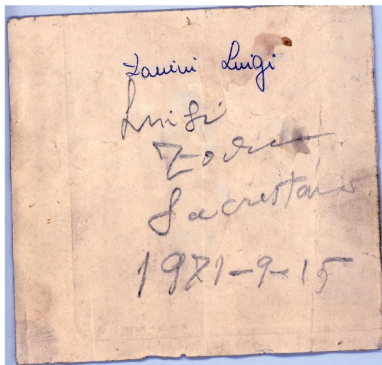 Zanini Luigi
Luigi
Sacrestano
1971-9-15